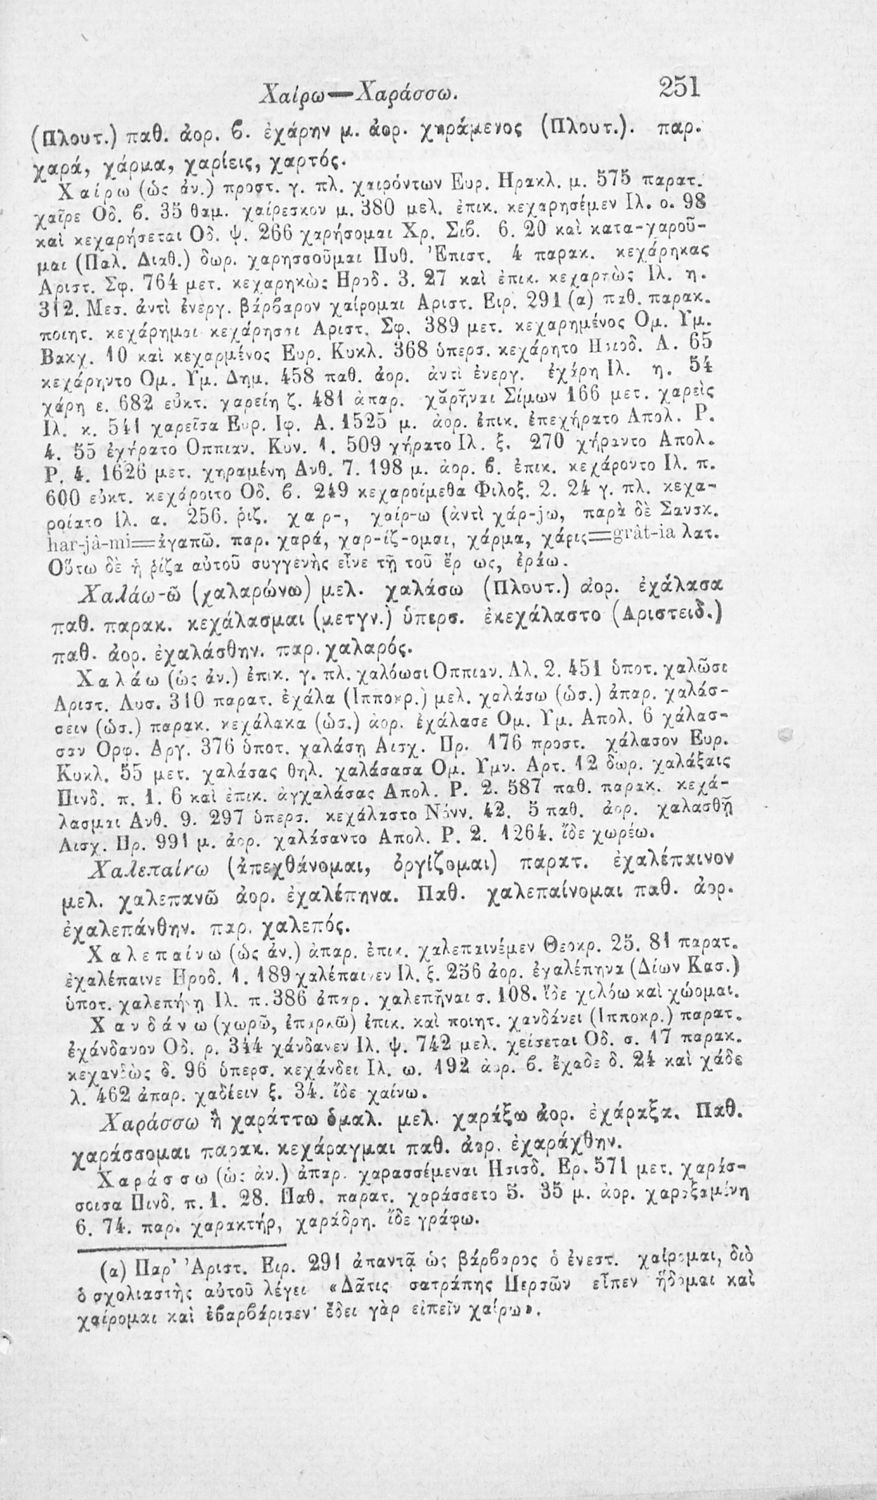 Χαίρω—Χαράσσω. 251
(Πλουτ.) παθ. ἀορ. β. ἐχάρην μ. ἀορ. χηράμενος (Πλουτ.). παρ.
χαρά, χάρμα, χαρίεις, χαρτός.
Χαίρω (ὡς ἀν.) προστ. γ. πλ. χαιρόντων Ευρ. Ηρακλ. μ. 575 παρατ.
χαῖρε Οδ. β. 35 θαμ. χαίρεσκον μ. 380 μελ. ἐπικ. κεχαρησέμεν Ιλ. ο. 98
καὶ κεχαρήσεται Οδ. ψ. 266 χαρήσομαι Χρ. Σιβ. 6. 20 καὶ κατα-χαροῦ-
μαι (Παλ. Διαθ.) δωρ. χαρησσοῦμαι Πυθ. Ἐπιστ. 4 παρακ. κεχάρηκας
Αριστ. Σφ. 764 μετ. κεχαρηκὼς Ηροδ. 3. 27 καὶ ἐπικ. κεχαρηὼς Ιλ. η.
312. Μεσ. ἀντὶ ἐνεργ. βάρβαρον χαίρομαι Αριστ. Ειρ. 291 (α) παθ. παρακ.
ποιητ. κεχάρημαι κεχάρησαι Αριστ. Σφ. 389 μετ. κεχαρημένος Ομ. Υμ.
Βακχ. 10 καὶ κεχαρμένος Ευρ. Κυκλ. 368 ὑπερσ. κεχάρητο Ησιοδ. Α. 65
κεχάρηντο Ομ. Υμ. Δημ. 458 παθ. ἀορ. ἀντὶ ἐνεργ. ἐχάρη Ιλ. η. 54
χάρη ε. 682 εὐκτ. χαρείη ζ. 481 ἀπαρ. χαρῆναι Σίμων 166 μετ. χαρεὶς
Ιλ. κ. 541 χαρεῖσα Ευρ. Ιφ. Α. 1525 μ. ἀορ. ἐπικ. ἐπεχήρατο Απολ. Ρ.
4. 55 ἐχήρατο Οππιαν. Κυν. 1. 509 χήρατο Ιλ. ξ. 270 χήραντο Απολ.
Ρ. 4. 1626 μετ. χηραμένη Ανθ. 7. 198 μ. ἀορ. β. ἐπικ. κεχάροντο Ιλ. π.
600 εὐκτ. κεχάροιτο Οδ. β. 249 κεχαροίμεθα Φιλοξ. 2. 24 γ. πλ. κεχα-
ροίατο Ιλ. α. 256. ῥιζ. χαρ-, χαίρ-ω (ἀντὶ χάρ-jω, παρὰ δὲ Σανσκ.
har-jà-mi=ἀγαπῶ. παρ. χαρά, χαρ-ίζ-ομαι, χάρμα, χάρις=gràt-ia λατ.
Οὕτω δὲ ἡ ῥίζα αὐτοῦ συγγενὴς εἶνε τῇ τοῦ ἔρ ως, ἐράω.
Χαλάω-ῶ (χαλαρώνω) μελ. χαλάσω (Πλουτ.) ἀορ. ἐχάλασα
παθ. παρακ. κεχάλασμαι (μετγν.) ὑπερσ. ἐκεχάλαστο (Αριστειδ.)
παθ. ἀορ. ἐχαλάσθην. παρ. χαλαρός.
Χαλάω (ὡς ἀν.) ἐπικ. γ. πλ. χαλόωσι Οππιαν. Αλ. 2. 451 ὑποτ. χαλῶσι
Αριστ. Λυσ. 310 παρατ. ἐχάλα (Ιπποκρ.) μελ. χαλάσω (ὡσ.) ἀπαρ. χαλάσ-
σειν (ὡσ.) παρακ. κεχάλακα (ὡσ.) ἀορ. ἐχάλασε Ομ. Υμ. Απολ. 6 χάλασ-
σαν Ορφ. Αργ. 376 ὑποτ. χαλάσῃ Αισχ. Πρ. 176 προστ. χάλασον Ευρ.
Κυκλ. 55 μετ. χαλάσας θηλ. χαλάσασα Ομ. Υμν. Αρτ. 12 δωρ. χαλάξαις
Πινδ. π. 1. 6 καὶ ἐπικ. ἀγχαλάσας Απολ. Ρ. 2. 587 παθ. παρακ. κεχά-
λασμαι Ανθ. 9. 297 ὑπερσ. κεχάλαστο Νόνν. 42. 5 παθ. ἀορ. χαλασθῇ
Αισχ. Πρ. 991 μ. ἀορ. χαλάσαντο Απολ. Ρ. 2. 1264. ἴδε χωρέω.
Χαλεπαίνω (ἀπεχθάνομαι, ὀργίζομαι) παρατ. ἐχαλέπαινον
μελ. χαλεπανῶ ἀορ. ἐχαλέπηνα. Παθ. χαλεπαίνομαι παθ. ἀορ.
ἐχαλεπάνθην. παρ. χαλεπός.
Χαλεπαίνω (ὡς ἀν.) ἀπαρ. ἐπικ. χαλεπαινέμεν Θεοκρ. 25. 81 παρατ.
ἐχαλέπαινε Ηροδ. 1. 189 χαλέπαινεν Ιλ. ξ. 256 ἀορ. ἐχαλέπηνα (Δίων Κασ.)
ὑποτ. χαλεπήνῃ Ιλ. π. 386 ἀπαρ. χαλεπῆναι σ. 108. ἴδε χολόω καὶ χώομαι.
Χανδάνω (χωρῶ, ἐπαρκῶ) ἐπικ. καὶ ποιητ. χανδάνει (Ιπποκρ.) παρατ.
ἐχάνδανον Οδ. ρ. 344 χάνδανεν Ιλ. ψ. 742 μελ. χείσεται Οδ. σ. 17 παρακ.
κεχανδὼς δ. 96 ὑπερσ. κεχάνδει Ιλ. ω. 192 ἀορ. β. ἔχαδε δ. 24 καὶ χάδε
λ. 462 ἀπαρ. χαδέειν ξ. 34. ἴδε χαίνω.
Χαράσσω ἢ χαράττω ὁμαλ. μελ. χαράξω ἀορ. ἐχάραξα. Παθ.
χαράσσομαι παρακ. κεχάραγμαι παθ. ἀορ. ἐχαράχθην.
Χαράσσω (ὡς ἀν.) ἀπαρ. χαρασσέμεναι Ησιοδ. Ερ. 571 μετ. χαράσ-
σοισα Πινδ. π. 1. 28. Παθ. παρατ. χαράσσετο 5. 35 μ. ἀορ. χαραξαμένη
6. 74. παρ. χαρακτήρ, χαράδρη. ἴδε γράφω.
(α) Παρ' Ἀριστ. Ειρ. 291 ἀπαντᾷ ὡς βάρβαρος ὁ ἐνεστ. χαίρομαι, διὸ
ὁ σχολιαστὴς αὐτοῦ λέγει «Δᾶτις σατράπης Περσῶν εἶπεν ἥδομαι καὶ
χαίρομαι καὶ ἐβαρβάρισεν· ἔδει γὰρ εἰπεῖν χαίρω».